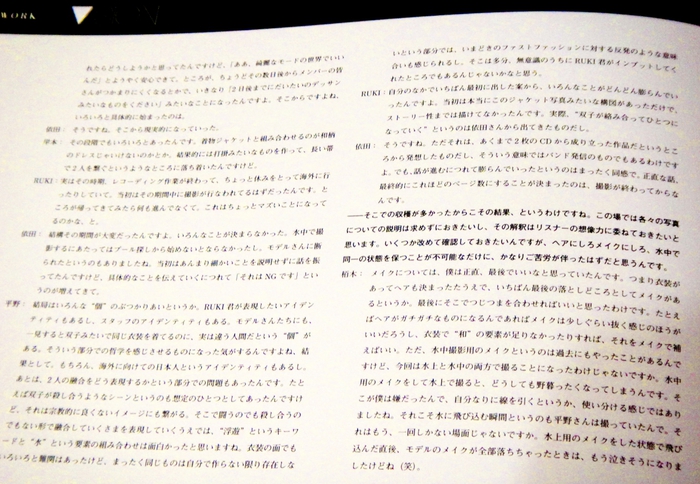 WORK
れたらどうしようかと思ってたんですけど、「ああ、綺麗なモードの世界でいい
んだ」とようやく安心できて。ところが、ちょうどその数日後からメンバーの皆
さんがつかまりにくくなるとかで、いきなり「2日後までにだいたいのデッサン
みたいなものをください」みたいなことになったんですよ。そこからですよね、
いろいろと具体的に始まったのは。
依田： そうですね。そこから現実的になっていった。
その段階でもいろいろあったんです。着物ジャケットと組み合わせるのが和柄
のドレスじゃいけないのかとか。結果的には打掛みたいなものを作って、長い帯
で2人を繋ぐというようなところに落ち着いたんですけど。
RUKI：実はその時期、レコーディング作業が終わって、ちょっと休みをとって海外に行
ったりしていて。当初はその期間中に撮影が行なわれてるはずだったんです。と
ころが帰ってきてみたら何も進んでなくて、これはちょっとマズいことになって
るのかな、と。
依田： 結構その期間が大変だったんですよ。いろんなことが決まらなかった。水中で撮
影するにあたってはプール探しから始めないとならなかったし、モデルさんに断
られたというのもありましたね。当初はあんまり細かいことを説明せずに話を振
ってたんですけど、具体的なことを伝えていくにつれて「それはNGです」とい
うのが増えてきて。
平野： 結局はいろんな“個”のぶつかりあいというか。RUKI君が表現したいアイデン
ティティもあるし、スタッフのアイデンティティもある。モデルさんたちにも、
一見すると双子みたいで同じ衣装を着てるのに、実は違う人間だという“個”が
ある。そういう部分での哲学を感じさせるものになった気がするんですよね、結
果として。もちろん、海外に向けての日本人というアイデンティティもあるし。
あとは、2人の融合をどう表現するかという部分での問題もあったんです。たと
えば双子が殺し合うようなシーンというのも想定のひとつとしてあったんですけ
ど、それは宗教的に良くないイメージにも繋がる。そこで闘うのでも殺し合うの
でもない形で融合していくさまを表現していくうえでは、“浮遊”というキーワ
ードと“水”という要素の組み合わせは面白かったと思いますね。衣装の面でも
いろいろと難関はあったけど、まったく同じものは自分で作らない限り存在しな
いという部分では、いまどきのファストファッションに対する反発のような意味
合いも感じられるし、そこは多分、無意識のうちにRUKI君がインプットしてく
れたところでもあるんじゃないかなと思う。
RUKI：自分のなかでいちばん最初に出した案から、いろんなことがどんどん膨らんでい
ったんですよ。当初は本当にこのジャケット写真みたいな構図があっただけで、
ストーリー性までは描けてなかったんです。実際、“双子が絡み合ってひとつに
なっていく”というのは依田さんから出てきたものだし。
依田： そうですね。ただそれは、あくまで2枚のCDから成り立った作品だというとこ
ろから発想したものだし、そういう意味ではバンド発信のものでもあるわけです
よ。でも、話が進むにつれて膨らんでいったというのはまったく同感で。正直な話、
最終的にこれほどのページ数にすることが決まったのは、撮影が終わってからな
んです。
──そこでの収穫が多かったからこその結果、というわけですね。この場では各々の写真
についての説明は求めずにおきたいし、その解釈はリスナーの想像力に委ねておきたいと
思います。いくつか改めて確認しておきたいんですが、ヘアにしろメイクにしろ、水中で
同一の状態を保つことが不可能なだけに、かなりご苦労が伴ったはずだと思うんです。
メイクについては、僕は正直、最後でいいなと思っていたんです。つまり衣装が
あってヘアも決まったうえで、いちばん最後の落としどころとしてメイクがあ
るというか。最後にそこでつじつまを合わせればいいと思ったわけです。たとえ
ばヘアがガチガチなものになるんであればメイクは少しぐらい抜く感じのほうが
いいだろうし、衣装で“和”の要素が足りなかったりすれば、それをメイクで補
えばいい。ただ、水中撮影用のメイクというのは過去にもやったことがあるんで
すけど、今回は水上と水中の両方で撮ることになったわけじゃないですか。水中
用のメイクをして水上で撮ると、どうしても野暮ったくなってしまうんです。そ
こが僕は嫌だったんで、自分なりに線を引くというか、使い分ける感じではあり
ましたね。それこそ水に飛び込む瞬間というのも平野さんは撮っていたんで。そ
れはもう、一回しかない場面じゃないですか。水上用のメイクをした状態で飛び
込んだ直後、モデルのメイクが全部落ちちゃったときは、もう泣きそうになりま
したけどね（笑）。